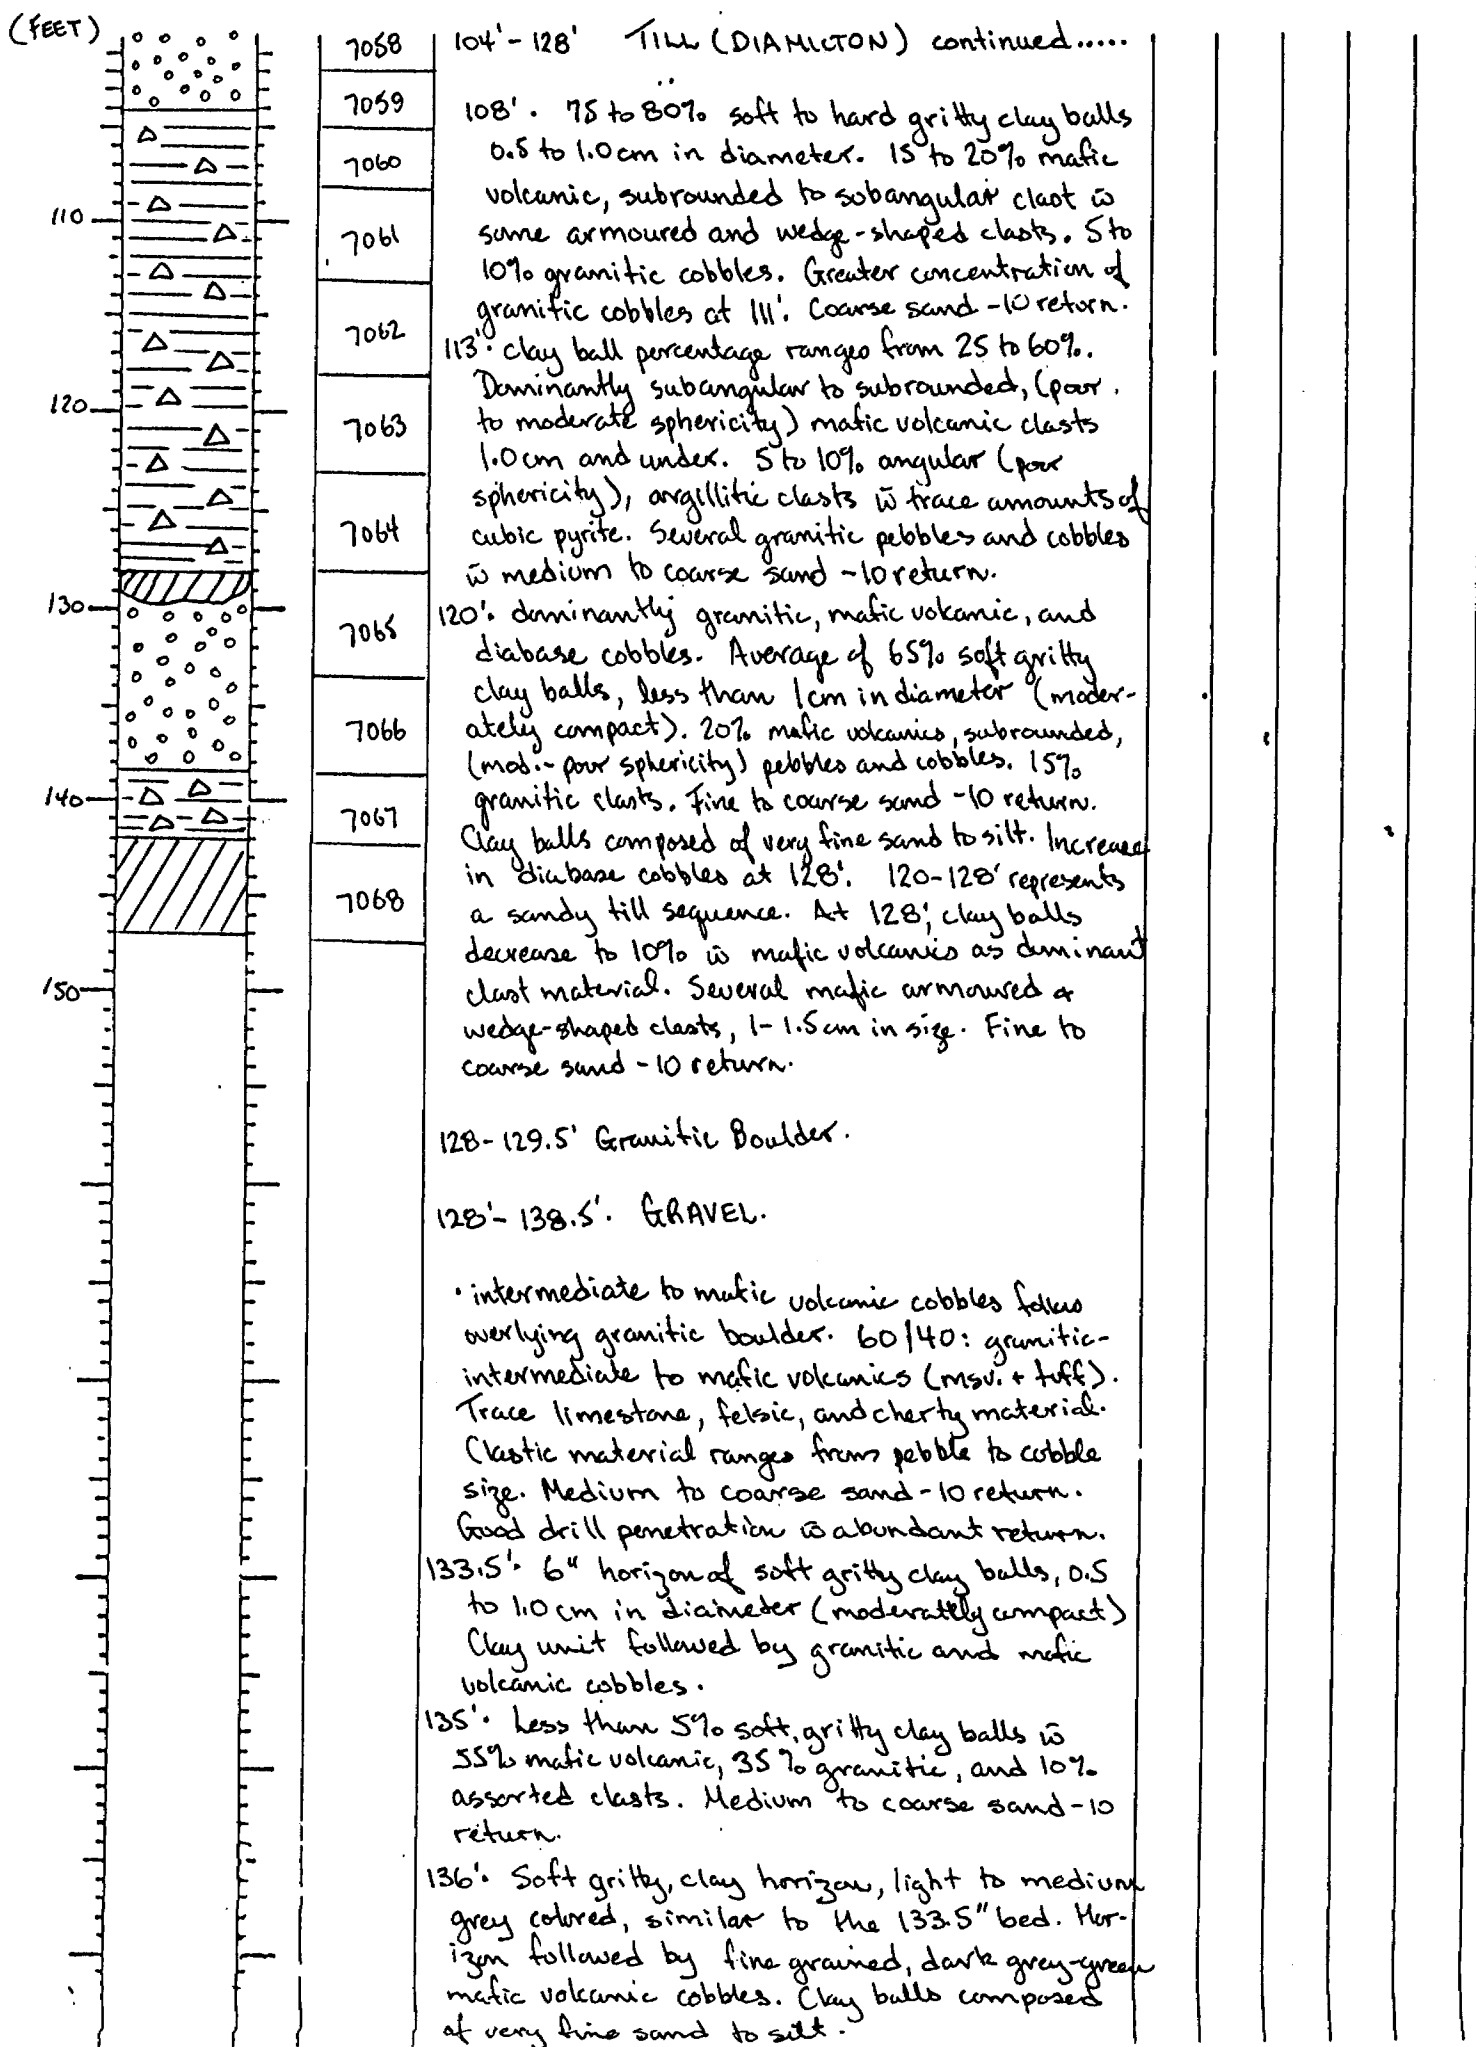 (FEET)
7058
104'-128' TILL (DIAMICTON) continued.....
7059
108'. 75 to 80% soft to hard gritty clay balls
0.5 to 1.0cm in diameter. 15 to 20% mafic
7060
volcanic, subrounded to subangular clast w̄
110
7061
some armoured and wedge-shaped clasts. 5 to
10% granitic cobbles. Greater concentration of
granitic cobbles at 111'. Coarse sand -10 return.
7062
113'. Clay ball percentage ranges from 25 to 60%.
Dominantly subangular to subrounded, (poor
120
7063
to moderate sphericity) mafic volcanic clasts
1.0cm and under. 5 to 10% angular (poor
sphericity), argillitic clasts w̄ trace amounts of
7064
cubic pyrite. Several granitic pebbles and cobbles
w̄ medium to coarse sand -10 return.
130
7065
120'. dominantly granitic, mafic volcanic, and
diabase cobbles. Average of 65% soft gritty
clay balls, less than 1cm in diameter (moder-
7066
ately compact). 20% mafic volcanics, subrounded,
(mod.-poor sphericity) pebbles and cobbles. 15%
140
7067
granitic clasts. Fine to coarse sand -10 return.
Clay balls composed of very fine sand to silt. Increase
in diabase cobbles at 128'. 120-128' represents
7068
a sandy till sequence. At 128', clay balls
decrease to 10% w̄ mafic volcanics as dominant
150
clast material. Several mafic armoured +
wedge-shaped clasts, 1-1.5cm in size. Fine to
coarse sand -10 return.
128-129.5' Granitic Boulder.
128'-138.5'. GRAVEL.
· intermediate to mafic volcanic cobbles follows
overlying granitic boulder. 60/40: granitic-
intermediate to mafic volcanics (msv. + tuff).
Trace limestone, felsic, and cherty material.
Clastic material ranges from pebble to cobble
size. Medium to coarse sand -10 return.
Good drill penetration w̄ abundant return.
133.5'. 6" horizon of soft gritty clay balls, 0.5
to 1.0 cm in diameter (moderately compact)
Clay unit followed by granitic and mafic
volcanic cobbles.
135'. Less than 5% soft, gritty clay balls w̄
55% mafic volcanic, 35% granitic, and 10%
assorted clasts. Medium to coarse sand -10
return.
136'. Soft gritty, clay horizon, light to medium
grey colored, similar to the 133.5" bed. Hor-
izon followed by fine grained, dark grey-green
mafic volcanic cobbles. Clay balls composed
of very fine sand to silt.